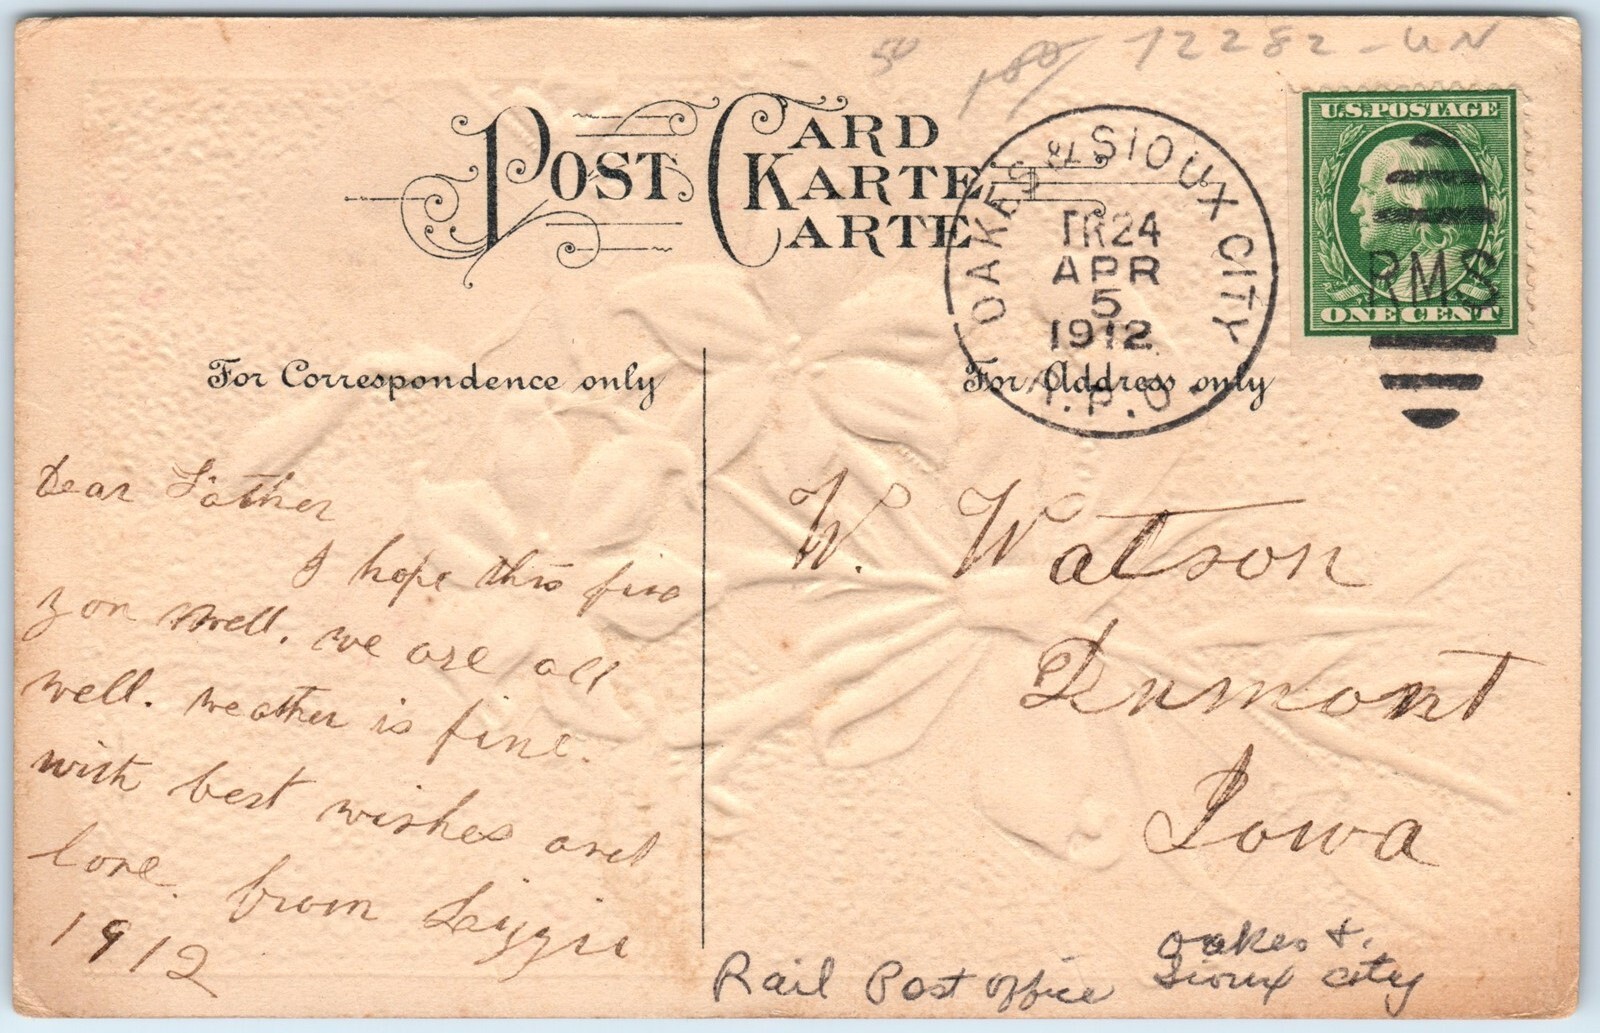 50 100 72282-UN
POST CARD
KARTE
CARTE
U.S. POSTAGE
ONE CENT
OAKES & SIOUX CITY
TR 24
APR
5
1912
R.P.O.
RMS
For Correspondence only
For Address only
Dear Father
I hope this find
you well. we are all
well. weather is fine.
with best wishes and
love. from Lizzie
1912
W. Watson
Dumont
Iowa
Rail Post office Oakes &
Sioux city